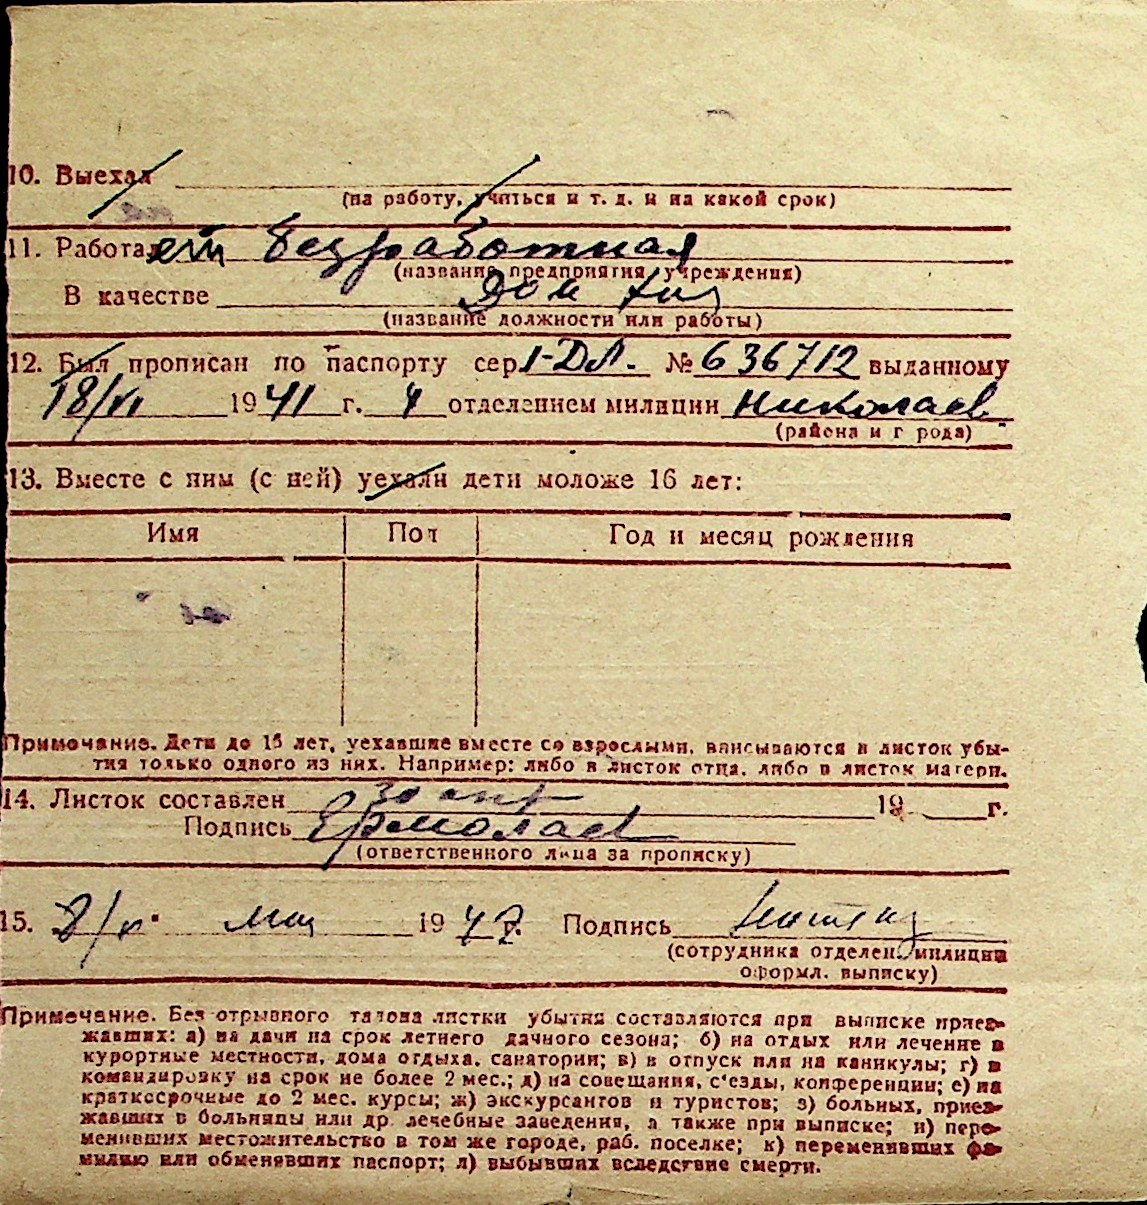 10. Выехал
(на работу, учиться и т. д. и на какой срок)
11. Работает безработная
(название предприятия, учреждения)
В качестве Дом хоз
(название должности или работы)
12. Был прописан по паспорту сер. I-ДЛ. № 636712 выданному
18/VI 1941 г. 4 отделением милиции Николаев
(района и г рода)
13. Вместе с ним (с ней) уехали дети моложе 16 лет:
Имя Пол Год и месяц рождения
Примечание. Дети до 16 лет, уехавшие вместе со взрослыми, вписываются в листок убы-
тия только одного из них. Например: либо в листок отца, либо в листок матери.
14. Листок составлен 30 апр 19 г.
Подпись Ермолаев
(ответственного лица за прописку)
15. мая 1947 Подпись
(сотрудника отделен. милиции
оформл. выписку)
Примечание. Без отрывного талона листки убытия составляются при выписке приез-
жавших: а) на дачи на срок летнего дачного сезона; б) на отдых или лечение в
курортные местности, дома отдыха, санатории; в) в отпуск или на каникулы; г) в
командировку на срок не более 2 мес.; д) на совещания, с'езды, конференции; е) на
краткосрочные до 2 мес. курсы; ж) экскурсантов и туристов; з) больных, приез-
жавших в больницы или др. лечебные заведения, а также при выписке; и) пере-
менивших местожительство в том же городе, раб. поселке; к) переменивших фа-
милию или обменявших паспорт; л) выбывших вследствие смерти.